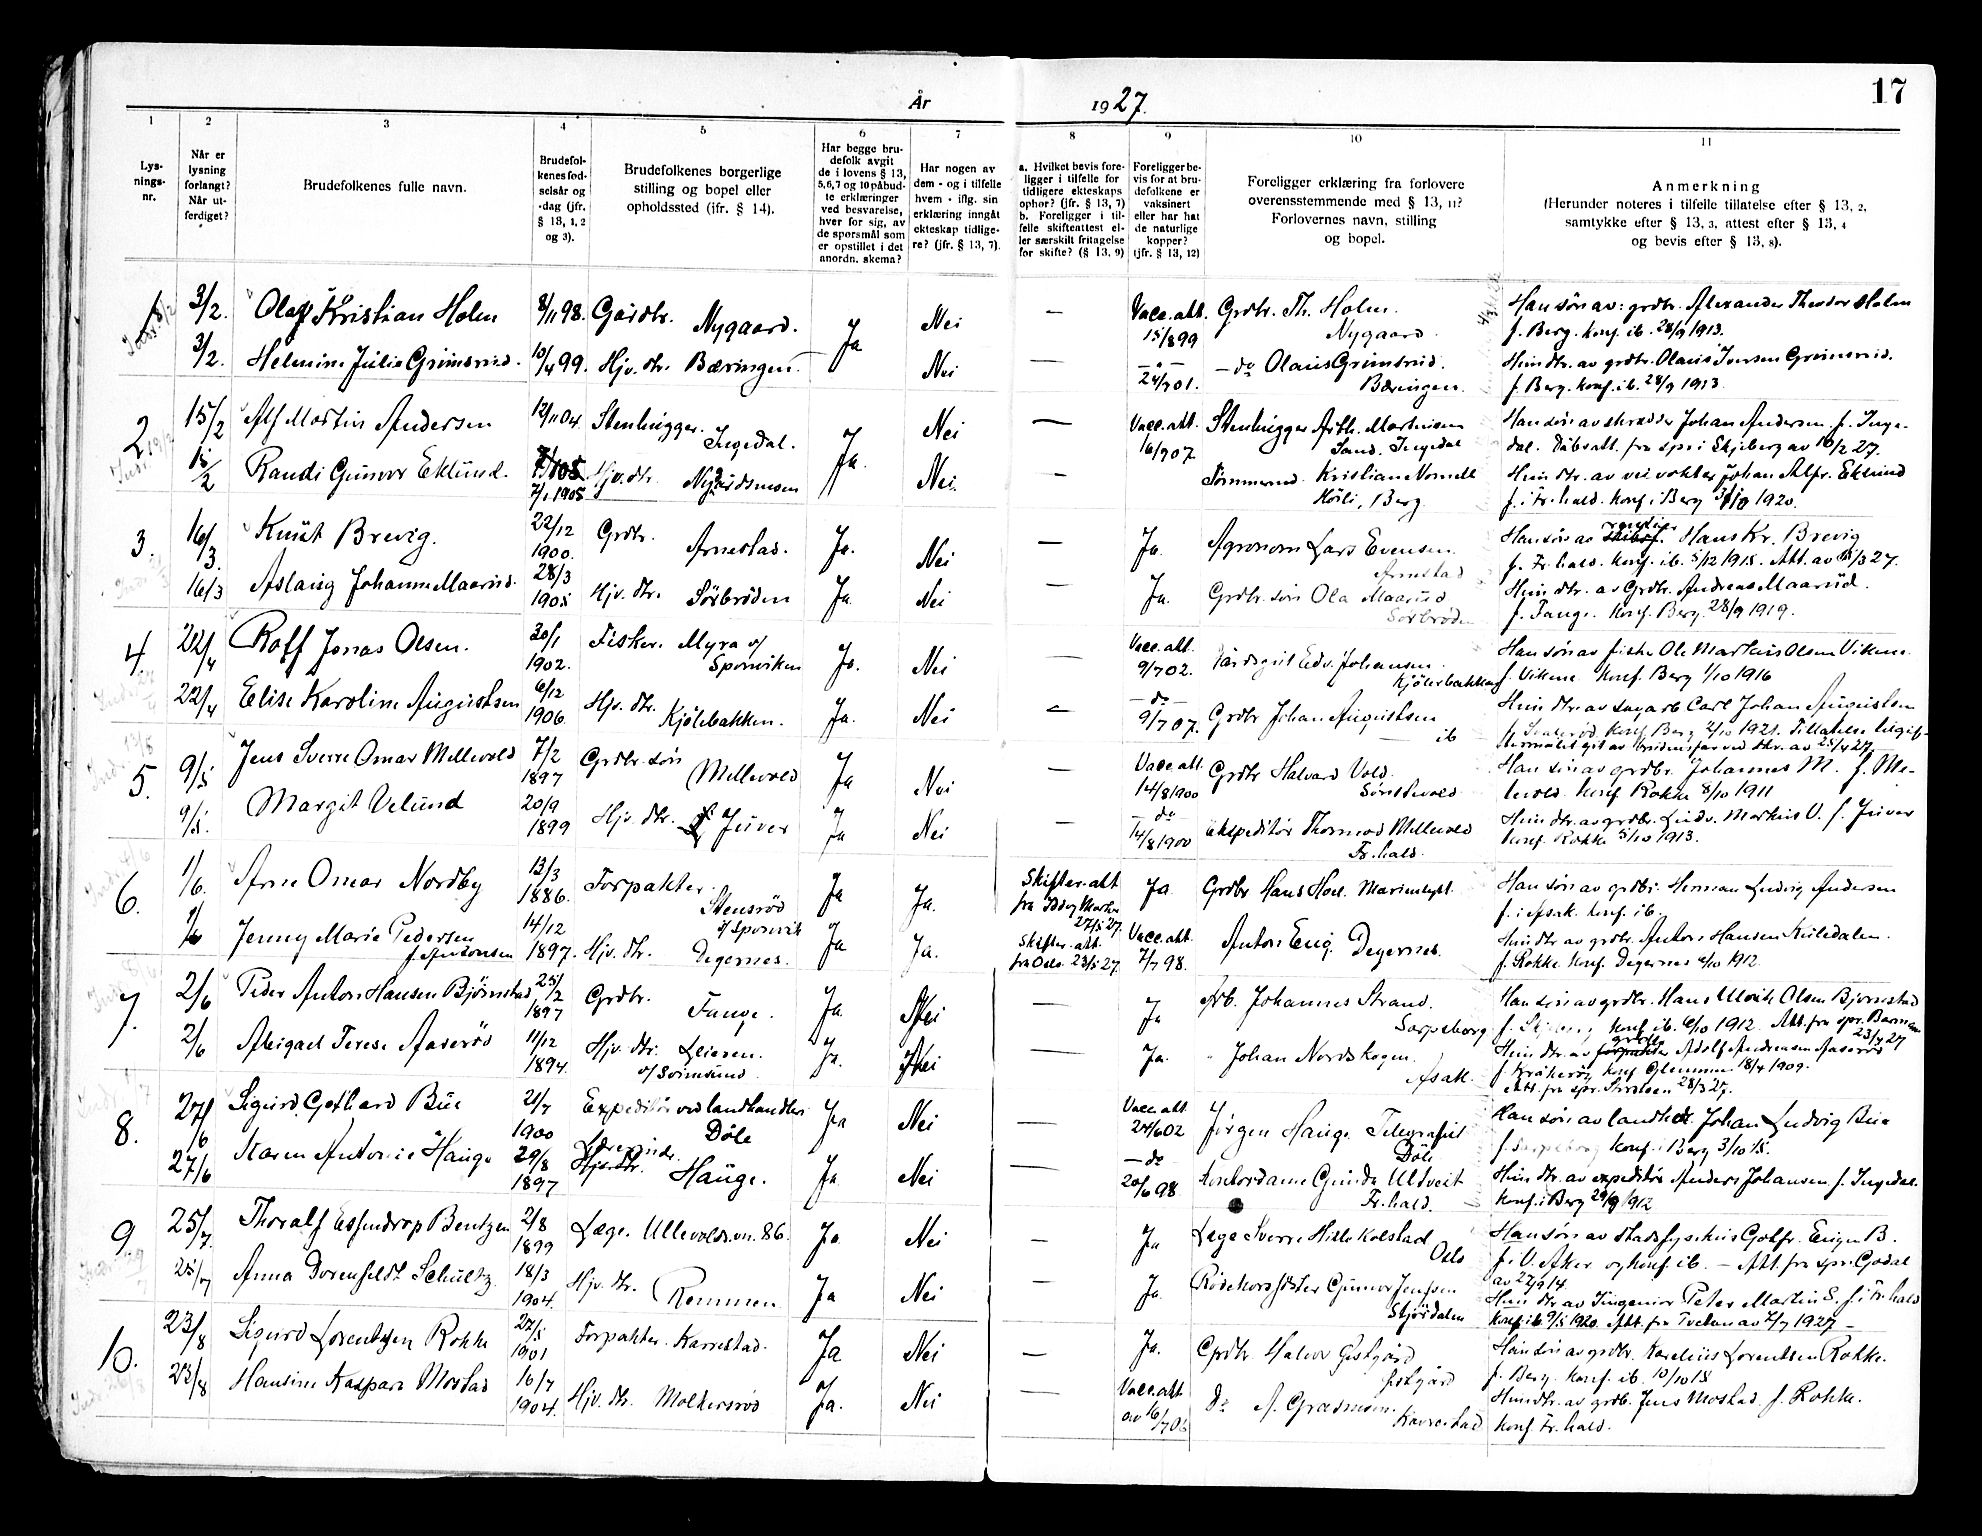 17
År 1927.
1 2 3 4 5 6 7 8 9 10 11
Lys-
nings-
nr.
Når er
lysning
forlangt?
Når ut-
ferdiget?
Brudefolkenes fulle navn.
Brudefol-
kenes fød-
selsår og
-dag (jfr.
§ 13, 1, 2
og 3).
Brudefolkenes borgerlige
stilling og bopel eller
opholdssted (jfr. § 14).
Har begge bru-
defolk avgit
de i lovens § 13,
5,6,7 og 10 påbud-
te erklæringer
ved besvarelse,
hver for sig, av
de spørsmål som
er opstillet i det
anordn. skema?
Har nogen av
dem - og i tilfelle
hvem - iflg. sin
erklæring inngåt
ekteskap tidlige-
re? (jfr. § 13, 7).
a. Hvilket bevis fore-
ligger i tilfelle for
tidligere ekteskaps
ophør? (jfr. § 13, 7)
b. Foreligger i til-
felle skifteattest el-
ler særskilt fritagelse
for skifte? (§ 13, 9)
Foreligger be-
vis for at bru-
defolkene er
vaksinert
eller har hat
de naturlige
kopper?
(jfr. § 13, 12)
Foreligger erklæring fra forlovere
overensstemmende med § 13, 11?
Forlovernes navn, stilling
og bopel.
Anmerkning
(Herunder noteres i tilfelle tillatelse efter § 13, 2,
samtykke efter § 13, 3, attest efter § 13, 4
og bevis efter § 13, 8).
1 3/2. Olaf Kristian Holm 8/11 98. Gårdbr. Nygaard. Ja Nei — Vacc.att. 15/8 99 Grdbr. Th. Holm. Nygaard. Han søn av: grdbr. Alexander Theodor Holm
f. Berg. konf. ib. 28/9 1913.
3/2. Helmine Julie Grimsrud. 10/4 99. Hjv. dtr. Bæringen. Nei — 24/7 01. — do Olaus Grimsrud. Bæringen. Hun dtr. av grdbr. Olaus Iversen Grimsrud.
f. Berg. konf. ib. 28/9 1913.
2 15/2 Alf Martin Andersen 12/11 04. Stenhugger. Ingedal. Ja. Nei — Vacc. att. 16/7 07. Stenhugger Arth. Martinsen Sand. Ingedal Han søn av skrædder Johan Andersen f. Inge-
dal. Dåbsatt. fra spr. i Skjeberg av 10/2 27.
15/2 Randi Gunvor Eklund. 7/1 1905 Hjv. dtr. Nei. — Tømmermd. Kristian Hørli, Berg Hun dtr. av veivokter Johan Alfr. Eklund
f. i Fr.hald. konf. i Berg 3/10 1920.
3. 16/3. Knut Brevig. 22/12 1900. Grdbr. Arnestad. Ja. Nei — Ja. Agronom Lars Evensen Arnestad Han søn av Hans Kr. Brevig
f. Fr.hald. konf. ib. 5/12 1915. Att. av 15/3 27.
16/3 Aslaug Johanne Maarud. 28/3 1905 Hjv. dtr. Sörbröden Ja Nei — Ja. Grdbr. søn Ola Maarud Sörbröden Hun dtr. av Grdbr. Andreas Maarud.
f. Tange. konf. Berg. 28/9 1919.
4. 22/4 Rolf Jonas Olsen. 30/1 1902. Fisker. Myra v/ Sponviken Ja. Nei — Vacc. att. 9/7 02. Edv. Johansen. Kjølerbakken Han søn av fisker Ole Markus Olsen Vikene
f. Vikene konf. Berg 1/10 1916
22/4 Elise Karoline Augustsen 6/12 1906. Hjv. dtr. Kjölebakken. Ja. Nei — do — 9/7 07. Grdbr Johan Augustsen — ib Hun dtr. av sagarb Carl Johan Augustsen
konf. Berg 2/10 1921.
5. 9/5 Jens Sverre Omar Mellevold 7/2 1897 Grdbr. søn Mellevold Ja Nei — Vacc. att. 14/8 1900 Grdbr Halvard Vold. Sønstevold Han søn av grdbr. Johannes M. f. Me-
levold. konf Rokke 8/10 1911
9/5. Margit Velund 20/9 1899 Hjv. dtr. Juver Ja Nei — do 14/8 1900 Ekspeditør Thorvald Mellevold Fr.hald. Hun dtr. av grdbr. Ludv. Markus V. f. Juver
konf. Rokke 5/10 1913.
6. 1/6. Arne Omar Nordby 13/3 1886. Forpakter. Stensrød v/ Sponvik Ja Ja. Skifteratt fra Idd og Marker 27/5 27. Ja. Grdbr Hans Hoel. Marienlyst. Han søn av grdbr. Herman Ludvig Andersen
f. i Asak. konf. ib.
1/6 Jenny Marie Pedersen f. Antonsen 14/12 1897. Hjv. dtr. Degernes. Ja Ja. Skifter. att. fra Oslo. 23/5 27. Vacc. att. 7/7 98. Anton Eng. Degernes. Hun dtr av grdbr. Anton Hansen Kuledalen.
f. Rokke konf. Degernes 6/10 1912.
7. 2/6 Peder Anton Hansen Bjørnstad 25/2 1897 Grdbr. Tange. Ja Nei — Ja Arb. Johannes Strand. Sarpsborg Han søn av grdbr. Hans Ulrik Olsen Bjørnestad
konf. ib. 6/10 1912. Att. fra spr. 23/4 27
2/6 Abigael Terese Aaserød 11/12 1894. Hjv. dtr. Leieren. v/ Svinesund. Ja. Nei — Ja. Johan Nordskogen. Asak. Hun dtr. av Adolf Andreasen Aaserød
f. Kråkerøy konf Glemmen 18/4 1909.
Att. fra spr. 28/3 27.
8. 27/6 Sigurd Gothard Bue 21/7 1900 Expeditør ved landhandleri Döle Ja Nei — Vacc. att. 24/6 02 Jörgen Hauge. Telegrafist Döle Han søn av landhdl. Johan Ludvig Bue
f. Sarpsborg konf. i Berg 3/10 15.
27/6 Karen Antonie Hauge 29/8 1897 Lærerinde. Hauge. Ja Nei — do 20/6 98. Kontordame Gunda Ultveit Fr.hald. Hun dtr. av expeditør Anders Johansen f. Ingedal.
konf. i Berg 29/9 1912
9. 25/7. Thoralf Essendrop Bentzen 2/8 1899 Læge. Ullevoldsvn. 86. Ja Nei — Ja Læge Sverre Hille Kolstad Oslo Han søn av Stadsfysikus Gotfr. Eugen B.
f. i V. Aker og konf. ib. — Att. fra spr. Gjødal
av 27/9 14.
25/7 Anna Dorenfeldt Schultz 18/3 1904. Hjv. dtr. Remmen Ja Nei — Ja. Rødekorssøster Gunvor Jensen Stjørdalen Hun dtr av Ingeniør Peter Martin S. f. i Fr.hald
konf. ib 9/5 1920. Att. fra av 7/7 1927 —
10. 23/8 Sigurd Lorentzen Rokke 27/5 1901 Forpakter. Karrestad. Ja Nei — Ja. Grdbr. Halvor Gjstgård Han søn av grdbr. Karelius Lorentsen Rokke.
f. Berg. konf. ib. 10/10 15
23/8 Hansine Kaspara Mostad 16/7 1904. Hjv. dtr. Molkersröd Ja. Nei — Vacc. att. av 16/7 06 Do A. Græsmoen. Karrestad Hun dtr. av grdb. Jens Mostad f. Rokke.
konf. Fr. hald.